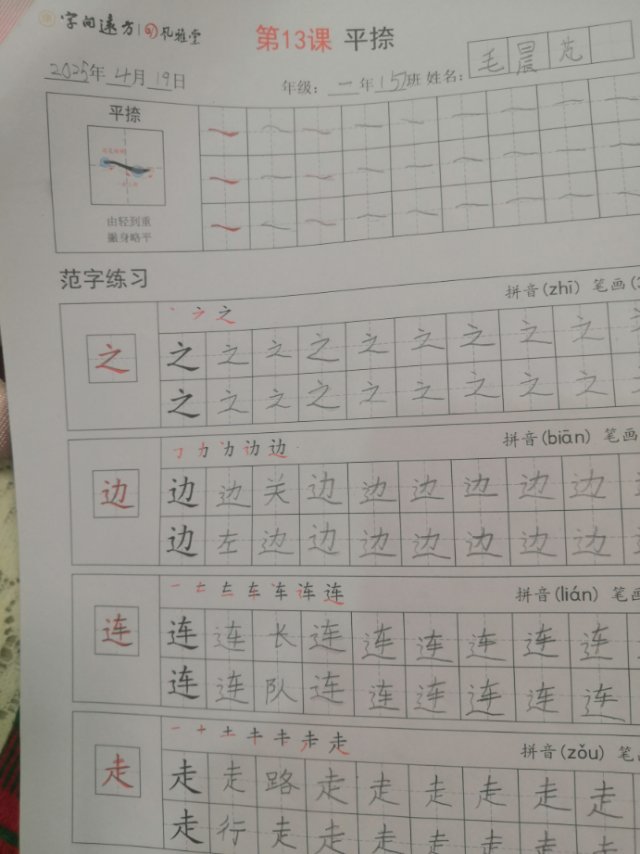 字间远方 凡雅堂
第13课 平捺
2025年 4月 19日 年级：一年 157班 姓名：毛晨芃
平捺
由轻到重
撇身略平
范字练习
拼音(zhī) 笔画
之 之 之
之 之 之 之 之 之 之 之 之 之
之 之 之 之 之 之 之 之 之
拼音(biān) 笔画
边
边 边 边 关 边 边 边 边 边 边
边 左 边 边 边 边 边 边 边
拼音(lián) 笔画
车 连 连
连 连 连 长 连 连 连 连 连 连
连 连 队 连 连 连 连 连 连
拼音(zǒu) 笔画
一 十 土 走 走
走 走 走 路 走 走 走 走 走 走
走 行 走 走 走 走 走 走 走